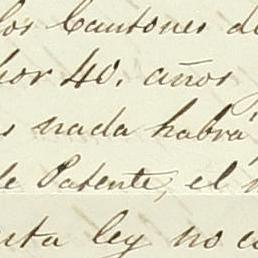 los Cantones de
por 40. años
nada habrá
de Patente, el
ley no